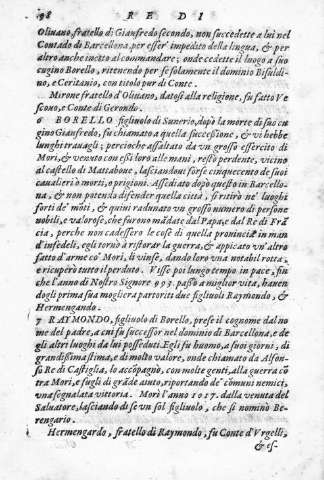 98 RE DI
Oliuano, fratello di Gianfredo secondo, non succedette a lui nel
Contado di Barcellona, per esser' impedito della lingua, & per
altro anche inetto al commandare; onde cedette il luogo a suo
cugino Borello, ritenendo per se solamente il dominio Bisuldi-
no, e Ceritanio, con titolo pur di Conte.
Mirone fratello d'Oliuano, datosi alla religione, fu fatto Ve
scouo, e Conte di Geronda.
6 BORELLO figliuolo di Sunerio, dopò la morte di suo cu
gino Gianfredo, fu chiamato a quella successione, & vi hebbe
lunghi trauagli; percioche assaltato da vn grosso essercito di
Mori, & venuto con essi loro alle mani, restò perdente, vicino
al castello di Mattabone, lasciandoui forse cinquecento de suoi
cauallieri ò morti, ò prigioni. Assediato dopò questo in Barcello-
na, & non potendo difender quella città, si ritirò ne' luoghi
forti de' mōti, & quiui radunato vn grosso numero di persone
nobili, e valorose, che furono mādate dal Papa, e dal Re di Frā
cia, perche non cadessero le cose di quella prouincia in man
d'infedeli, egli tornò a ristorar la guerra, & appicato vn'altro
fatto d'arme co' Mori, li vinse, dando loro vna notabil rotta,
e ricuperò tutto il perduto. Visse poi lungo tempo in pace, fin
che l'anno di Nostro Signore 993. passò a miglior vita, hauen
dogli prima sua mogliera partoriti due figliuoli Raymondo, &
Hermengando.
7 RAYMONDO, figliuolo di Borello, prese il cognome dal no
me del padre, a cui fu successor nel dominio di Barcellona, e de
gli altri luoghi da lui posseduti. Egli fu huomo, a suoi giorni, di
grandissima stima, e di molto valore, onde chiamato da Alfon-
so Re di Castiglia, lo accōpagnò, con molte genti, alla guerra cō
tra Mori, e fugli di grāde aiuto, riportando de' cōmuni nemici,
vna segnalata vittoria. Morì l'anno 1017. dalla venuta del
Saluatore, lasciando di se vn sol figliuolo, che si nominò Be-
rengario.
Hermengardo, fratello di Raymondo, fu Conte d'Vrgelli,
& es-